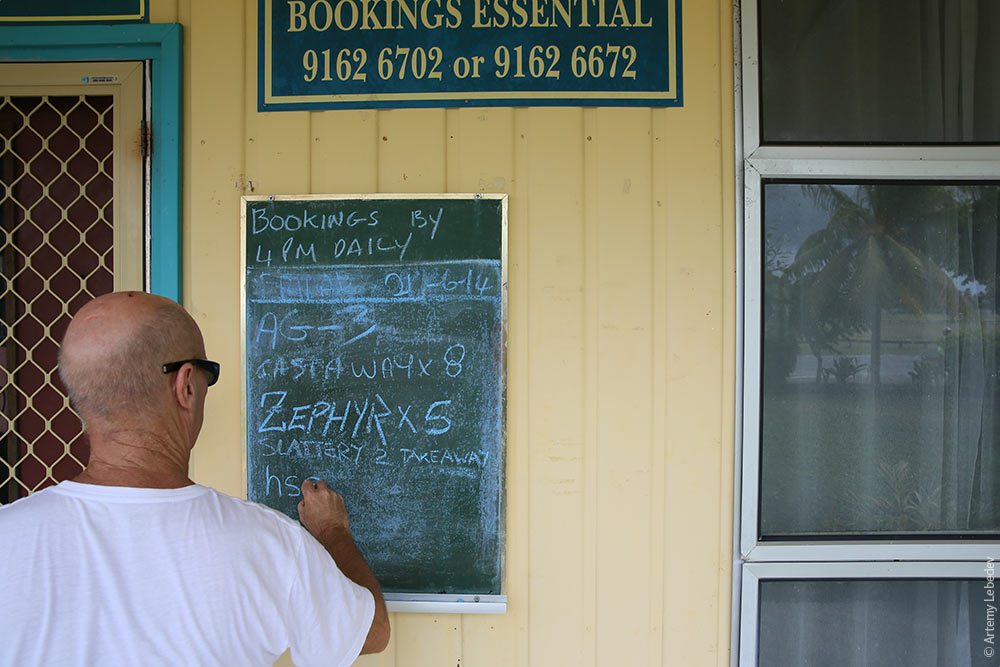 BOOKINGS ESSENTIAL
9162 6702 or 9162 6672
BOOKINGS BY
4 PM DAILY
-6-14
AG-3
CASTAWAY x 8
ZEPHYR x 5
SLATTERY 2 TAKEAWAY
hs
© Artemy Lebedev